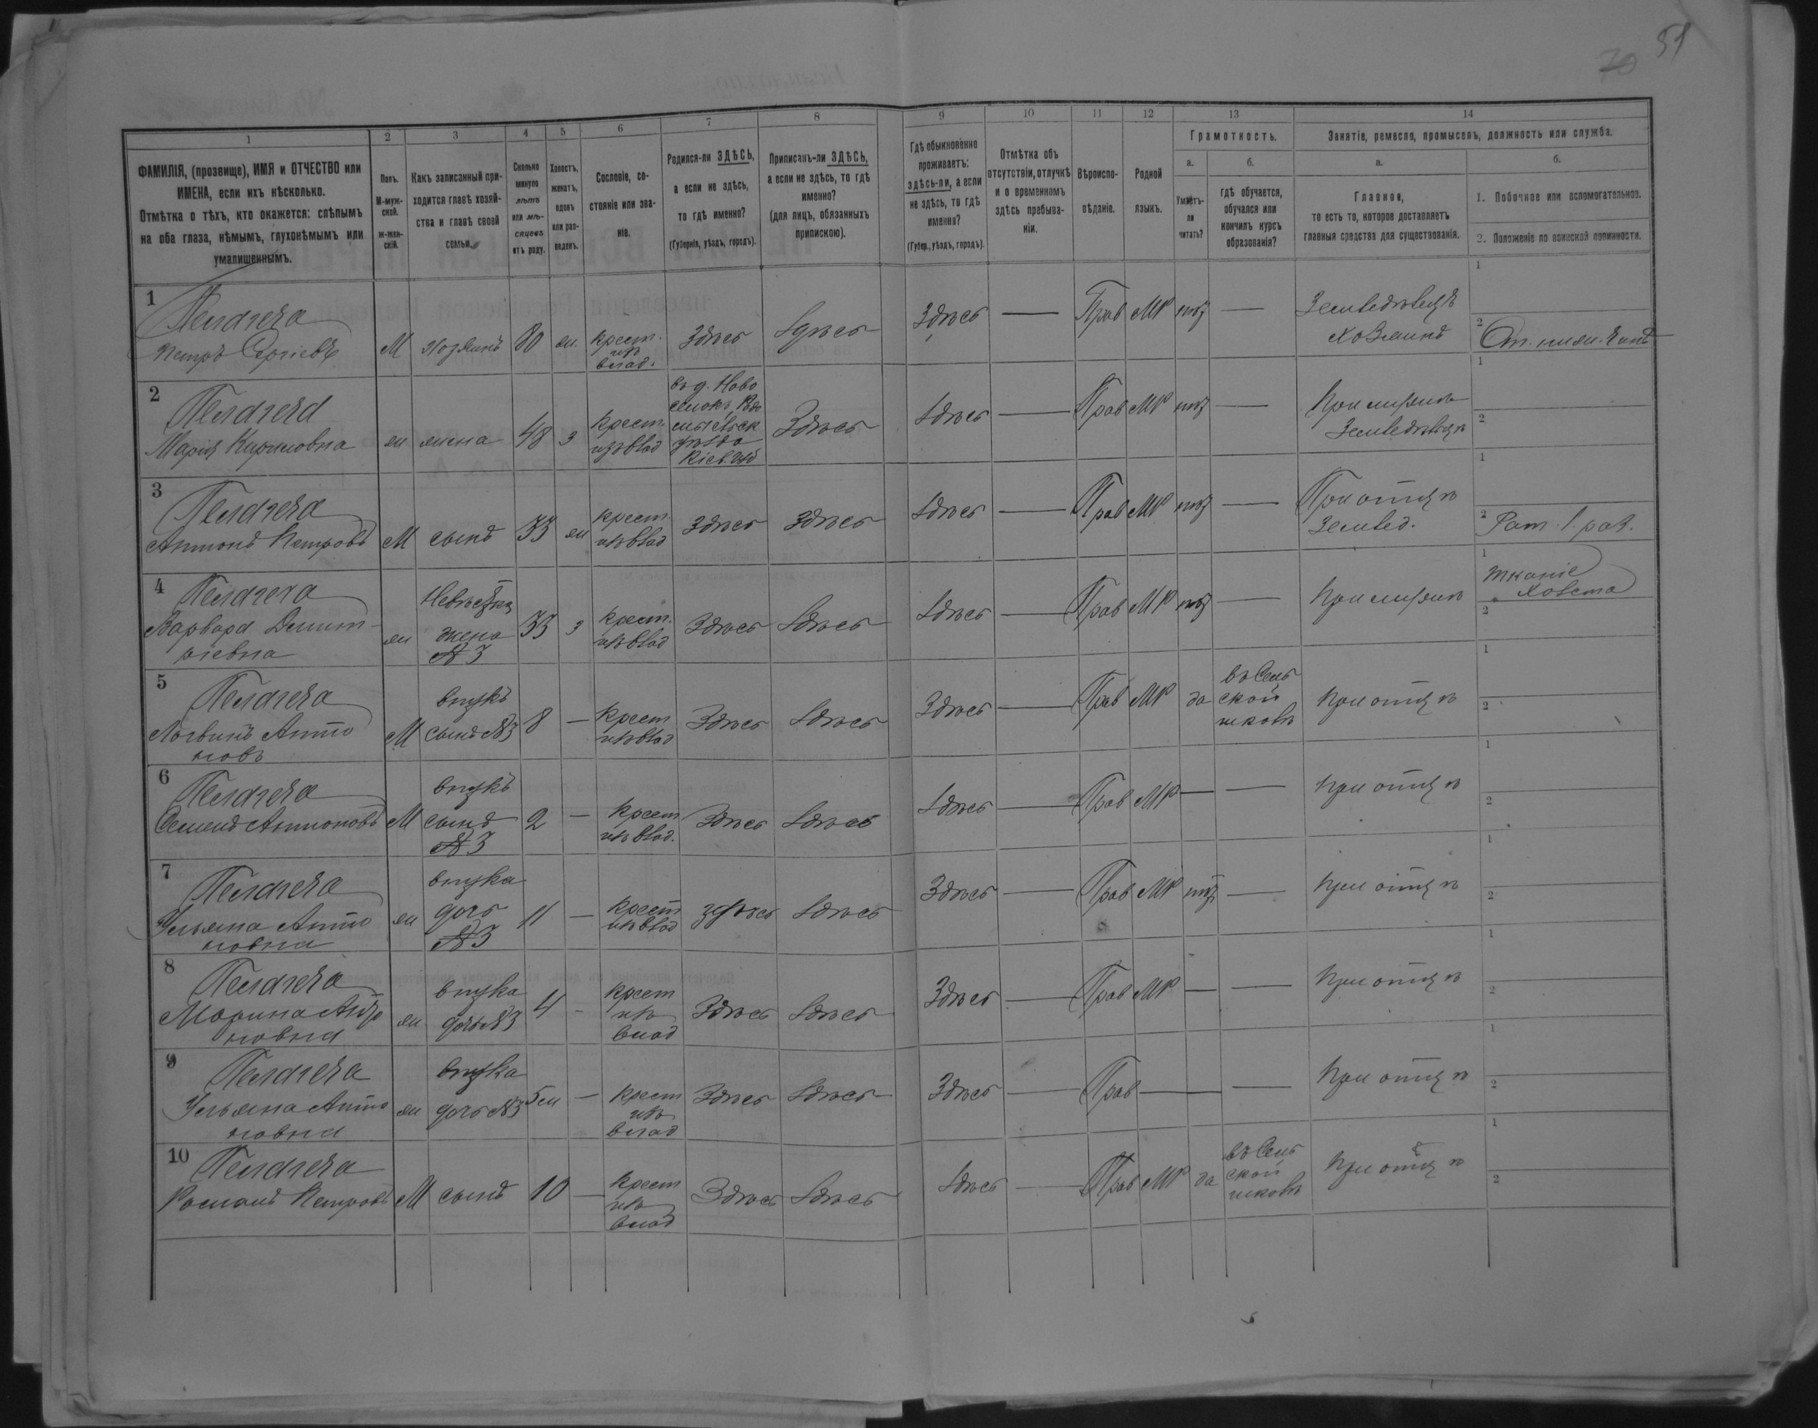 70 51
1
2
3
4
5
6
7
8
9
10
11
12
13
14
ФАМИЛІЯ, (прозвище), ИМЯ и ОТЧЕСТВО или
ИМЕНА, если ихъ нѣсколько.
Отмѣтка о тѣхъ, кто окажется: слѣпымъ
на оба глаза, нѣмымъ, глухонѣмымъ или
умалишеннымъ.
Полъ.
М-муж-
ской.
ж-жен-
скій.
Какъ записанный при-
ходится главѣ хозяй-
ства и главѣ своей
семьи.
Сколько
минуло
лѣтъ
или мѣ-
сяцевъ
отъ роду.
Холостъ,
женатъ,
вдовъ
или раз-
веденъ.
Сословіе, со-
стояніе или зва-
ніе.
Родился-ли ЗДѢСЬ,
а если не здѣсь,
то гдѣ именно?
(Губернія, уѣздъ, городъ).
Приписанъ-ли ЗДѢСЬ,
а если не здѣсь, то гдѣ
именно?
(для лицъ, обязанныхъ
припискою).
Гдѣ обыкновенно
проживаетъ:
здѣсь-ли, а если
не здѣсь, то гдѣ
именно?
(Губер., уѣздъ, городъ).
Отмѣтка объ
отсутствіи, отлучкѣ
и о временномъ
здѣсь пребыва-
ніи.
Вѣроиспо-
вѣданіе.
Родной
языкъ.
Грамотность.
а.
Умѣетъ-
ли
читать?
б.
гдѣ обучается,
обучался или
кончилъ курсъ
образованія?
Занятіе, ремесло, промыселъ, должность или служба.
а.
Главное,
то есть то, которое доставляетъ
главныя средства для существованія.
б.
1. Побочное или вспомогательное.
2. Положеніе по воинской повинности.
1
Петръ Сергіевъ
М хозяинъ 80 ж. крест. изъ влад. Здѣсь Здѣсь Здѣсь — Прав МР нѣт — Земледѣлецъ
хозяинъ
1
2
2
Марія Кириловна
ж жена 48 з крест. изъ влад Здѣсь Здѣсь — Прав МР нѣт — При мужѣ
Земледѣлец
1
2
3
Антонъ Петровъ
М сынъ 33 ж крест. изъ влад Здѣсь Здѣсь Здѣсь — Прав МР нѣт — При отцѣ
Землед.
1
2 Рат. 1 раз.
4
Варвара Димит-
ріевна
ж Невѣстка
жена
№3 33 з крест. изъ влад Здѣсь Здѣсь Здѣсь — Прав МР нѣт — При мужѣ
1 тканіе
холста
2
5
Логвинъ Анто
новъ
М внукъ
сынъ №3 8 — крест изъ влад Здѣсь Здѣсь Здѣсь — Прав МР да въ Сель
ской
школѣ при отцѣ
1
2
6
Семенъ Антоновъ
М внукъ
сынъ
№3 2 — крест изъ влад. Здѣсь Здѣсь Здѣсь — Прав МР — — при отцѣ
1
2
7
Ульяна Анто
новна
ж внука
дочь
№3 11 — крест изъ влад здѣсь Здѣсь Здѣсь — Прав МР нѣт — при отцѣ
1
2
8
Марина Анто
новна
ж внука
дочь №3 4 - крест
изъ
влад Здѣсь Здѣсь Здѣсь — Прав МР — — при отцѣ
1
2
9
Ульяна Анто
новна
ж внука
дочь №3 5м — крест
изъ
влад Здѣсь Здѣсь Здѣсь — Прав — — — При отцѣ
1
2
10
Романъ Петровъ
М сынъ 10 — крест
изъ
влад Здѣсь Здѣсь Здѣсь — Прав МР да въ Сель
ской
школѣ При отцѣ
1
2